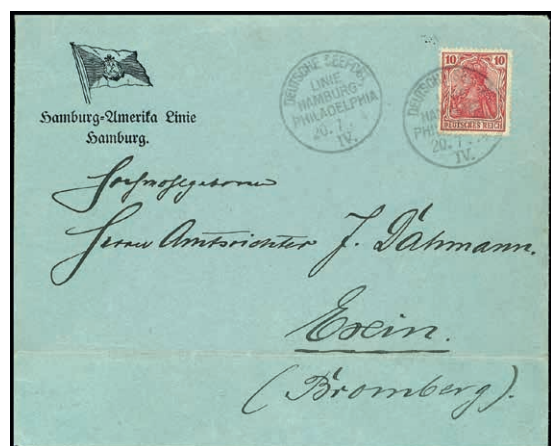 Hamburg-Amerika Linie
Hamburg.
DEUTSCHE SEEPOST
LINIE
HAMBURG-
PHILADELPHIA
20.7.
IV.
10 10
DEUTSCHES REICH
DEUTSCHE
HAM
PHI
20.7.
IV.
Hochwohlgeboren
Herrn Amtsrichter J. Dähmann.
Exin.
(Bromberg).